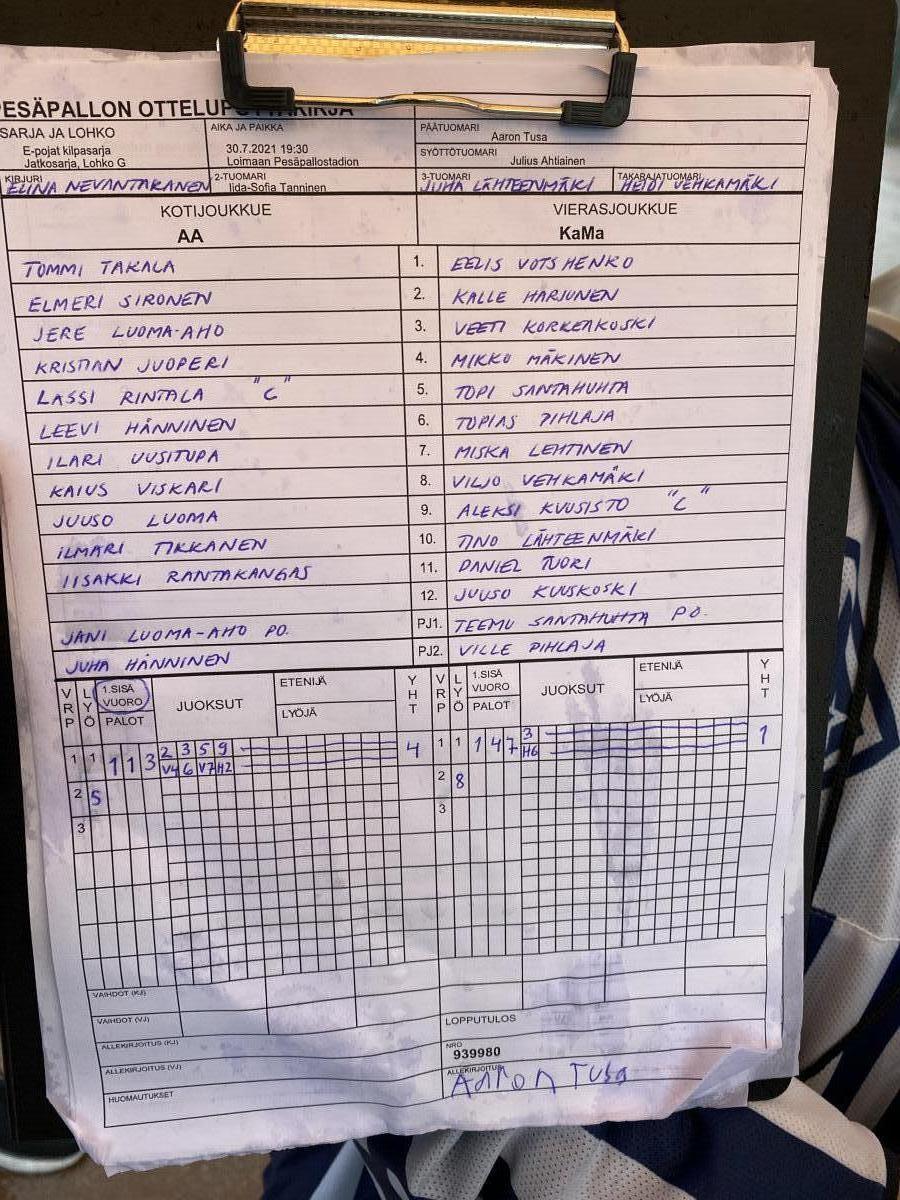 PESÄPALLON OTTELUPÖYTÄKIRJA
SARJA JA LOHKO
E-pojat kilpasarja
Jatkosarja, Lohko G
AIKA JA PAIKKA
30.7.2021 19:30
Loimaan Pesäpallostadion
PÄÄTUOMARI
Aaron Tusa
SYÖTTÖTUOMARI
Julius Ahtiainen
KIRJURI
ELINA NEVANTAKANEN
2-TUOMARI
Iida-Sofia Tanninen
3-TUOMARI
JUHA LÄHTEENMÄKI
TAKARAJATUOMARI
HEIDI VEHKAMÄKI
KOTIJOUKKUE
AA
VIERASJOUKKUE
KaMa
TOMMI TAKALA 1. EELIS VOTSHENKO
ELMERI SIRONEN 2. KALLE HARJUNEN
JERE LUOMA-AHO 3. VEETI KORKEAKOSKI
KRISTIAN JUOPERI 4. MIKKO MÄKINEN
LASSI RINTALA "C" 5. TOPI SANTAHUHTA
LEEVI HÄNNINEN 6. TOPIAS PIHLAJA
ILARI UUSITUPA 7. MISKA LEHTINEN
KAIUS VISKARI 8. VILJO VEHKAMÄKI
JUUSO LUOMA 9. ALEKSI KUUSISTO "C"
ILMARI TIKKANEN 10. TINO LÄHTEENMÄKI
IISAKKI RANTAKANGAS 11. DANIEL TUORI
12. JUUSO KUUSKOSKI
JANI LUOMA-AHO PO. PJ1. TEEMU SANTAHUHTA PO.
JUHA HÄNNINEN PJ2. VILLE PIHLAJA
VRP LYÖ 1.SISÄ VUORO PALOT JUOKSUT ETENIJÄ LYÖJÄ YHT VRP LYÖ 1.SISÄ VUORO PALOT JUOKSUT ETENIJÄ LYÖJÄ YHT
1 1 1 1 3 2 3 5 9 4 1 1 1 4 7 3 1
V4 6 V7 H2 H6
2 5 2 8
3 3
VAIHDOT (KJ)
VAIHDOT (VJ)
LOPPUTULOS
ALLEKIRJOITUS (KJ)
NRO
939980
ALLEKIRJOITUS (VJ)
ALLEKIRJOITUS
Aaron Tusa
HUOMAUTUKSET